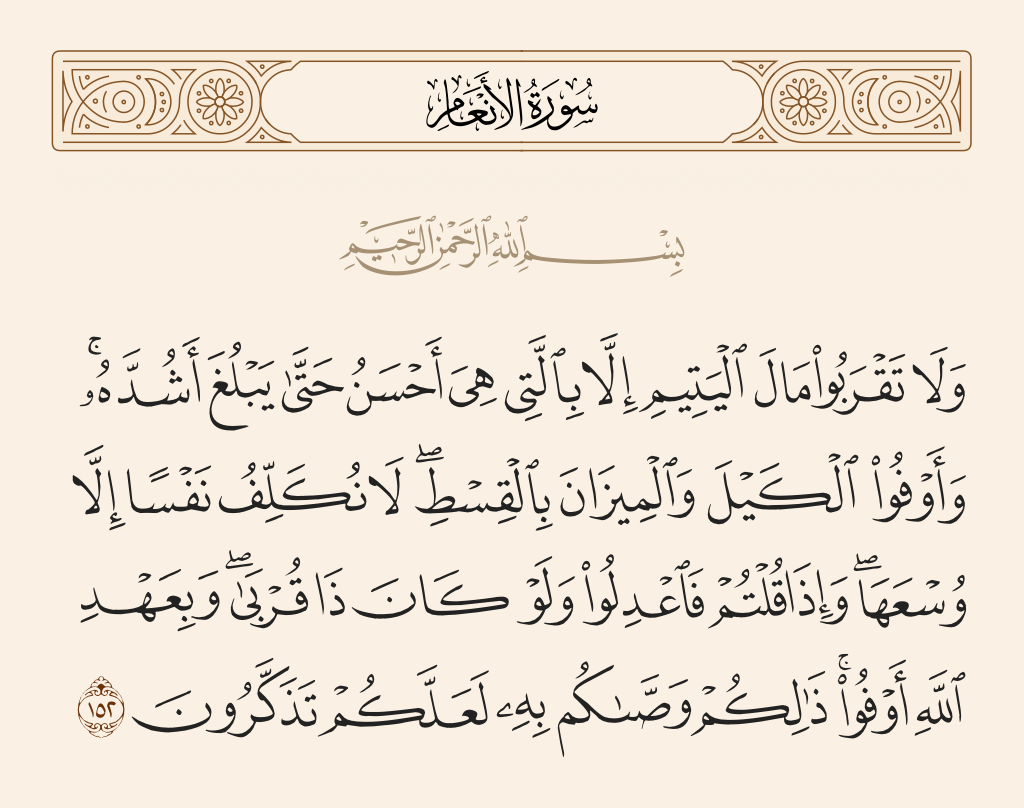 سُورَةُ الأَنْعَامِ
بِسْمِ ٱللَّهِ ٱلرَّحْمَٰنِ ٱلرَّحِيمِ
وَلَا تَقْرَبُوا۟ مَالَ ٱلْيَتِيمِ إِلَّا بِٱلَّتِى هِىَ أَحْسَنُ حَتَّىٰ يَبْلُغَ أَشُدَّهُۥ ۚ
وَأَوْفُوا۟ ٱلْكَيْلَ وَٱلْمِيزَانَ بِٱلْقِسْطِ ۖ لَا نُكَلِّفُ نَفْسًا إِلَّا
وُسْعَهَا ۖ وَإِذَا قُلْتُمْ فَٱعْدِلُوا۟ وَلَوْ كَانَ ذَا قُرْبَىٰ ۖ وَبِعَهْدِ
ٱللَّهِ أَوْفُوا۟ ۚ ذَٰلِكُمْ وَصَّىٰكُم بِهِۦ لَعَلَّكُمْ تَذَكَّرُونَ ١٥٢